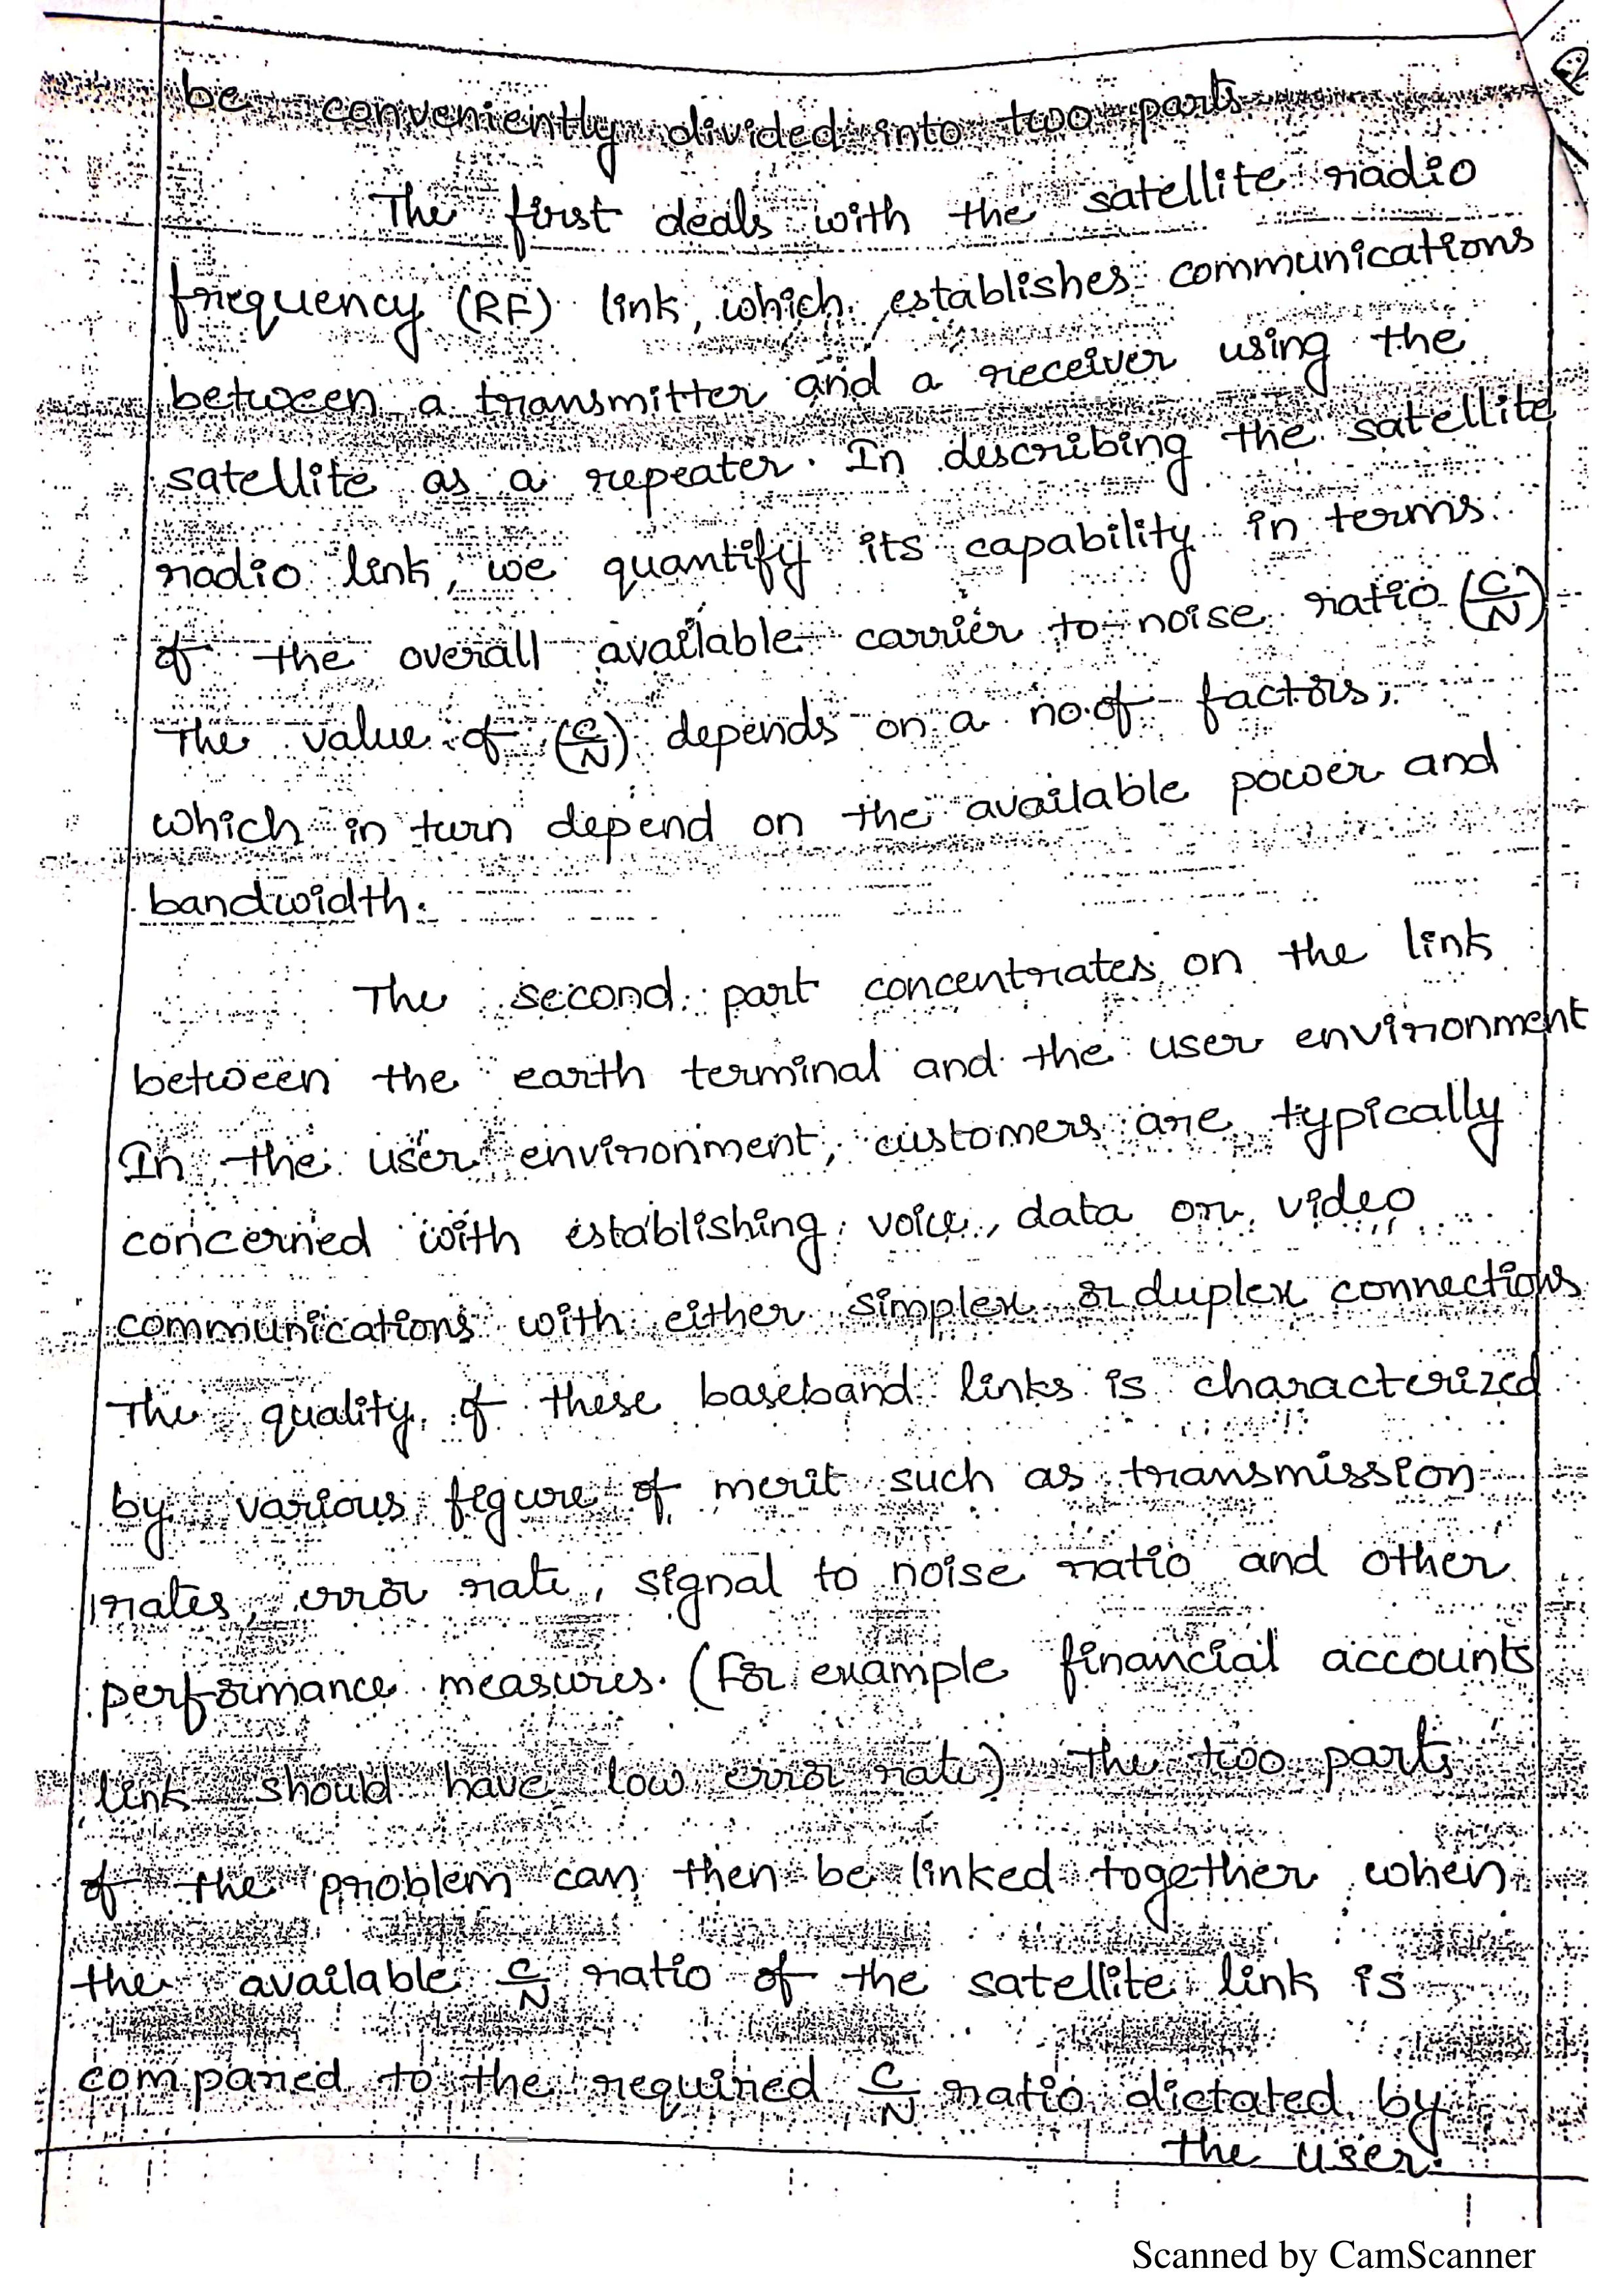 be conveniently divided into two parts
The first deals with the satellite radio
frequency (RF) link, which establishes communications
between a transmitter and a receiver using the
satellite as a repeater. In describing the satellite
radio link, we quantify its capability in terms
of the overall available carrier to noise ratio (C/N)
The value of (C/N) depends on a no.of factors,
which in turn depend on the available power and
bandwidth.
The second part concentrates on the link
between the earth terminal and the user environment
In the user environment, customers are typically
concerned with establishing voice, data or video
communications with either simplex or duplex connections
The quality of these baseband links is characterized
by various figure of merit such as transmission
rates, error rate, signal to noise ratio and other
performance measures. (For example financial accounts
link should have low error rate) The two parts
of the problem can then be linked together when
the available C/N ratio of the satellite link is
compared to the required C/N ratio dictated by
the user.
Scanned by CamScanner